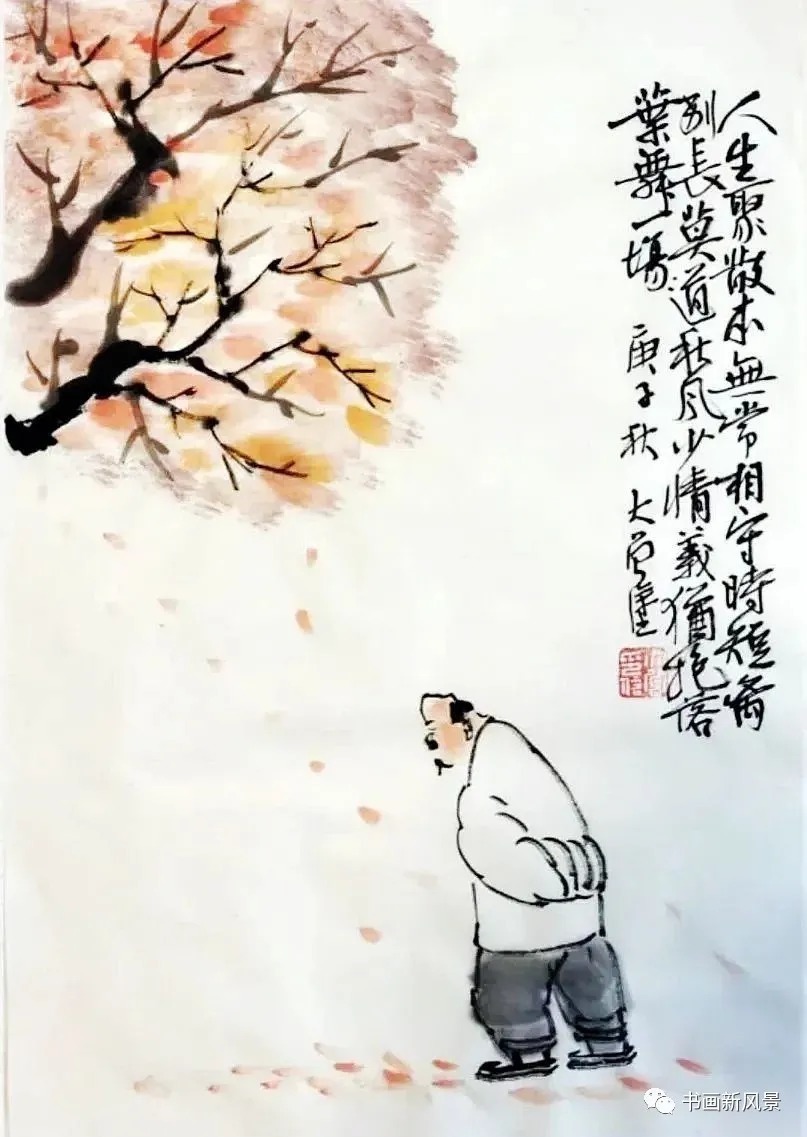 人生聚散本無常相守時短离
别長莫道秋风少情義猶抱落
葉舞一場 庚子秋 大
书画新风景